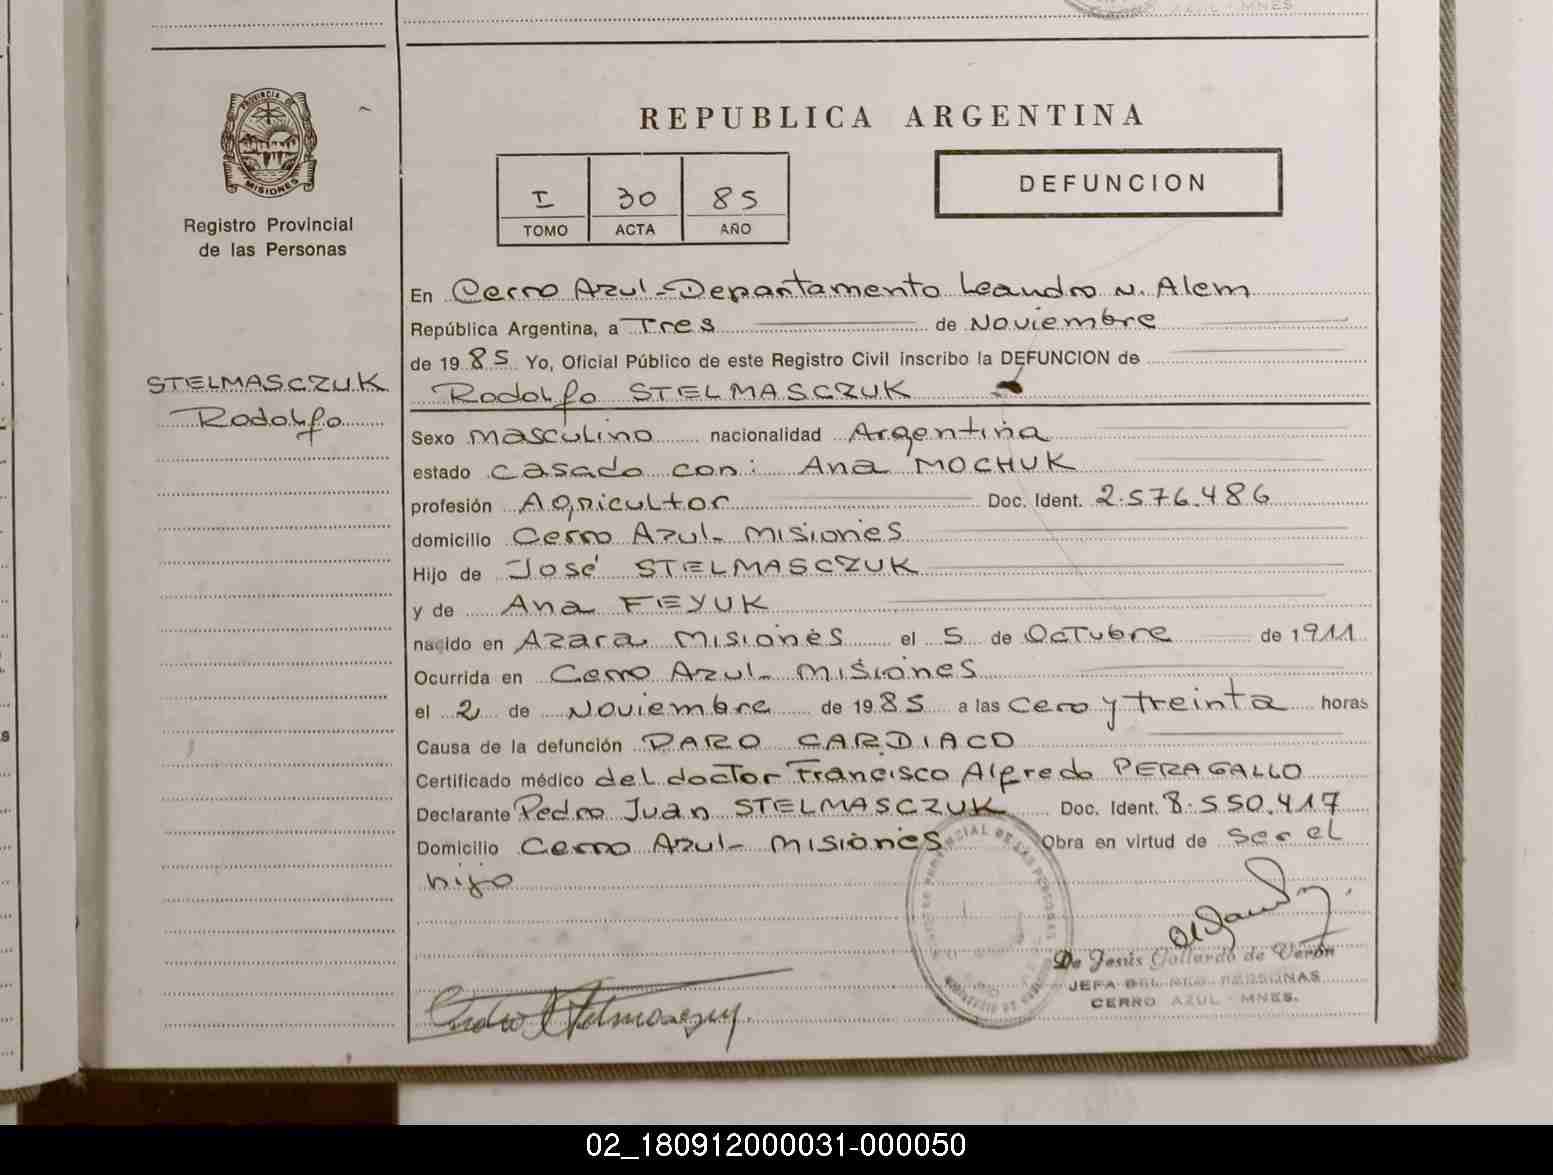 AZUL - MNES
PROVINCIA DE
MISIONES
Registro Provincial
de las Personas
STELMASCZUK
Rodolfo
REPUBLICA ARGENTINA
I 30 85
TOMO ACTA AÑO
DEFUNCION
En Cerro Azul-Departamento Leandro N. Alem
República Argentina, a Tres de Noviembre
de 1985 Yo, Oficial Público de este Registro Civil inscribo la DEFUNCION de
Rodolfo STELMASCZUK
Sexo masculino nacionalidad Argentina
estado casado con: Ana MOCHUK
profesión Agricultor Doc. Ident. 2.576.486
domicilio Cerro Azul- Misiones
Hijo de José STELMASCZUK
y de Ana FEYUK
nacido en Azara Misiones el 5 de Octubre de 1911
Ocurrida en Cerro Azul- Misiones
el 2 de Noviembre de 1985 a las cero y treinta horas
Causa de la defunción PARO CARDIACO
Certificado médico del doctor Francisco Alfredo PERAGALLO
Declarante Pedro Juan STELMASCZUK Doc. Ident. 8.550.417
Domicilio Cerro Azul- Misiones Obra en virtud de ser el
hijo
De Jesús Gallardo de Verón
JEFA DEL REG. PERSONAS
CERRO AZUL - MNES.
02_180912000031-000050